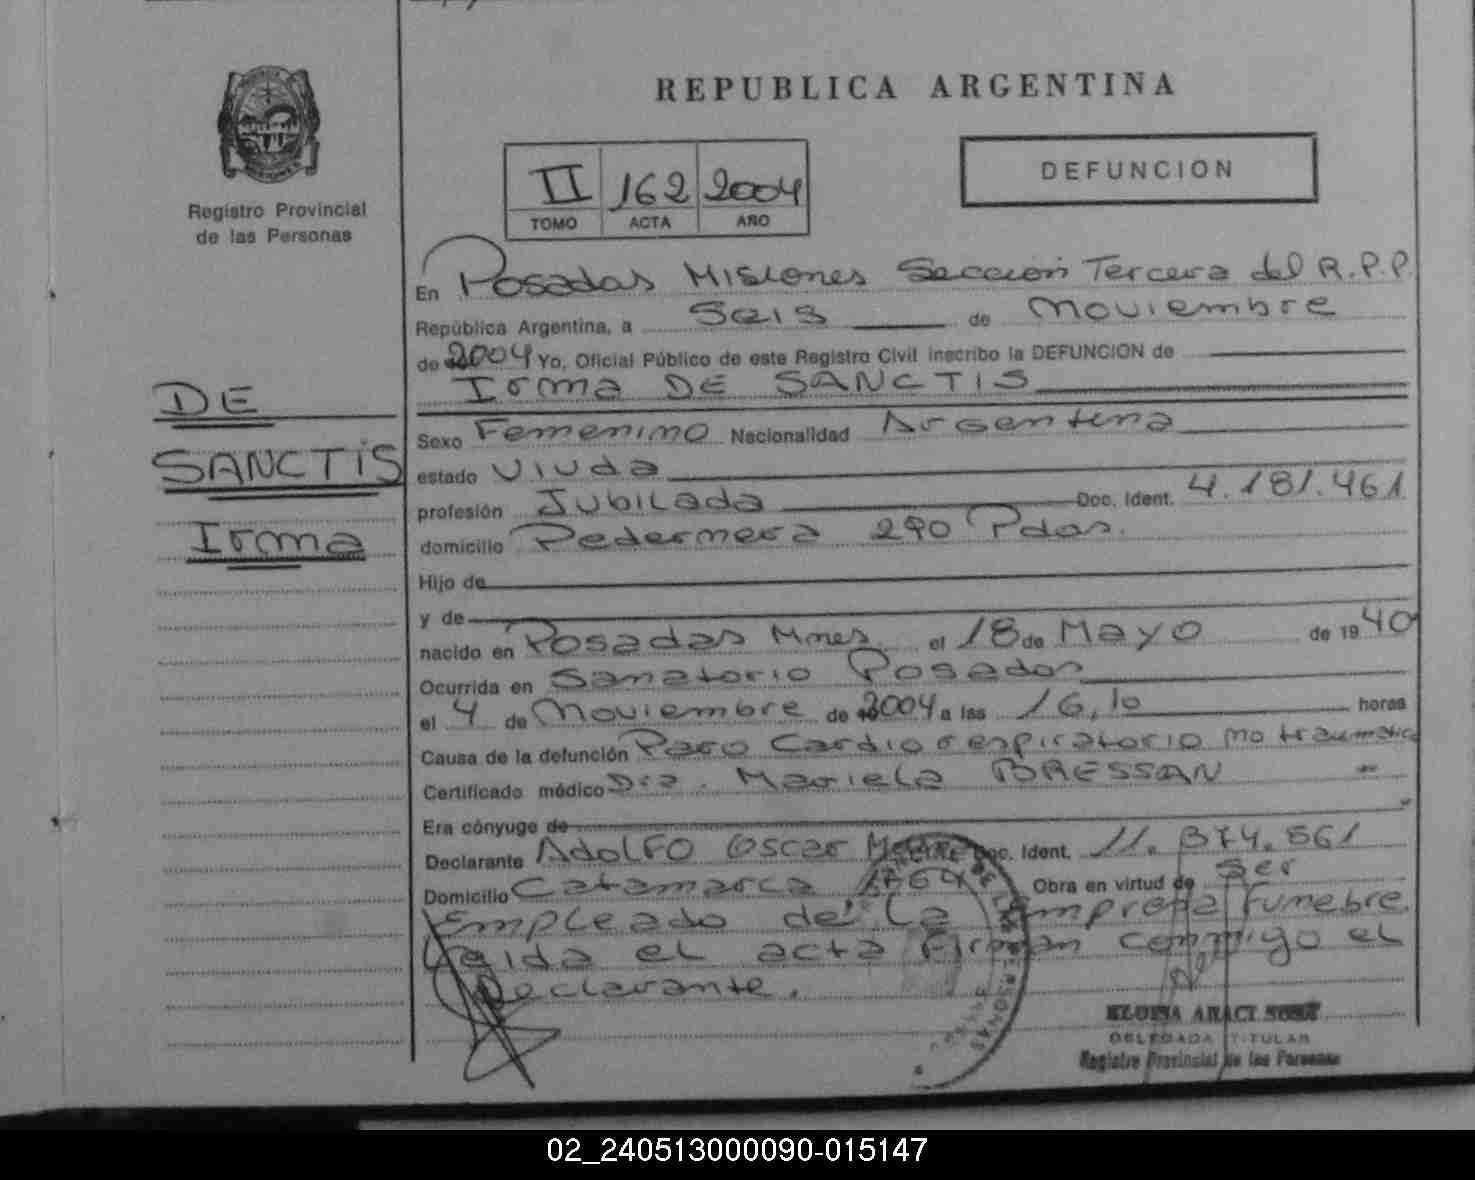 REPUBLICA ARGENTINA
Registro Provincial
de las Personas
II 162 2004
TOMO ACTA AÑO
DEFUNCION
DE
SANCTIS
Irma
En Posadas Misiones Sección Tercera del R.P.P
República Argentina, a Seis de Noviembre
de 2004 Yo, Oficial Público de este Registro Civil inscribo la DEFUNCION de
Irma DE SANCTIS
Sexo Femenino Nacionalidad Argentina
estado Viuda
profesión Jubilada Doc. Ident. 4.181.461
domicilio Pedernera 290 Pdas.
Hijo de
y de
nacido en Posadas Mnes el 18 de Mayo de 1940
Ocurrida en Sanatorio Posadas
el 4 de Noviembre de 2004 a las 16,10 horas
Causa de la defunción Paro Cardiorespiratorio no traumatico
Certificado médico Dra. Mariela BRESSAN
Era cónyuge de
Declarante Adolfo Oscar Doc. Ident. 11.374.561
Domicilio Catamarca 1764 Obra en virtud de Ser
Empleado de La Empresa Funebre.
Leida el acta Firman conmigo el
Declarante.
DELEGADA TITULAR
Registro Provincial de las Personas
02_240513000090-015147